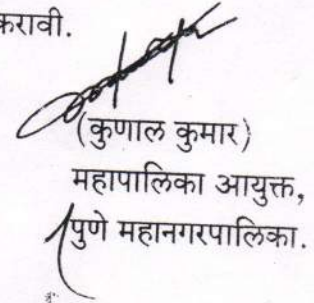 करावी.
(कुणाल कुमार)
महापालिका आयुक्त,
पुणे महानगरपालिका.